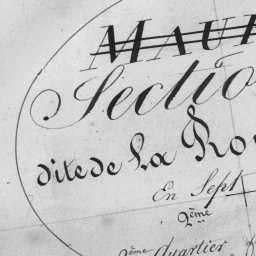 MAU
Sectio
dite de la Ro
En Sept
2ème
2ème Quartier